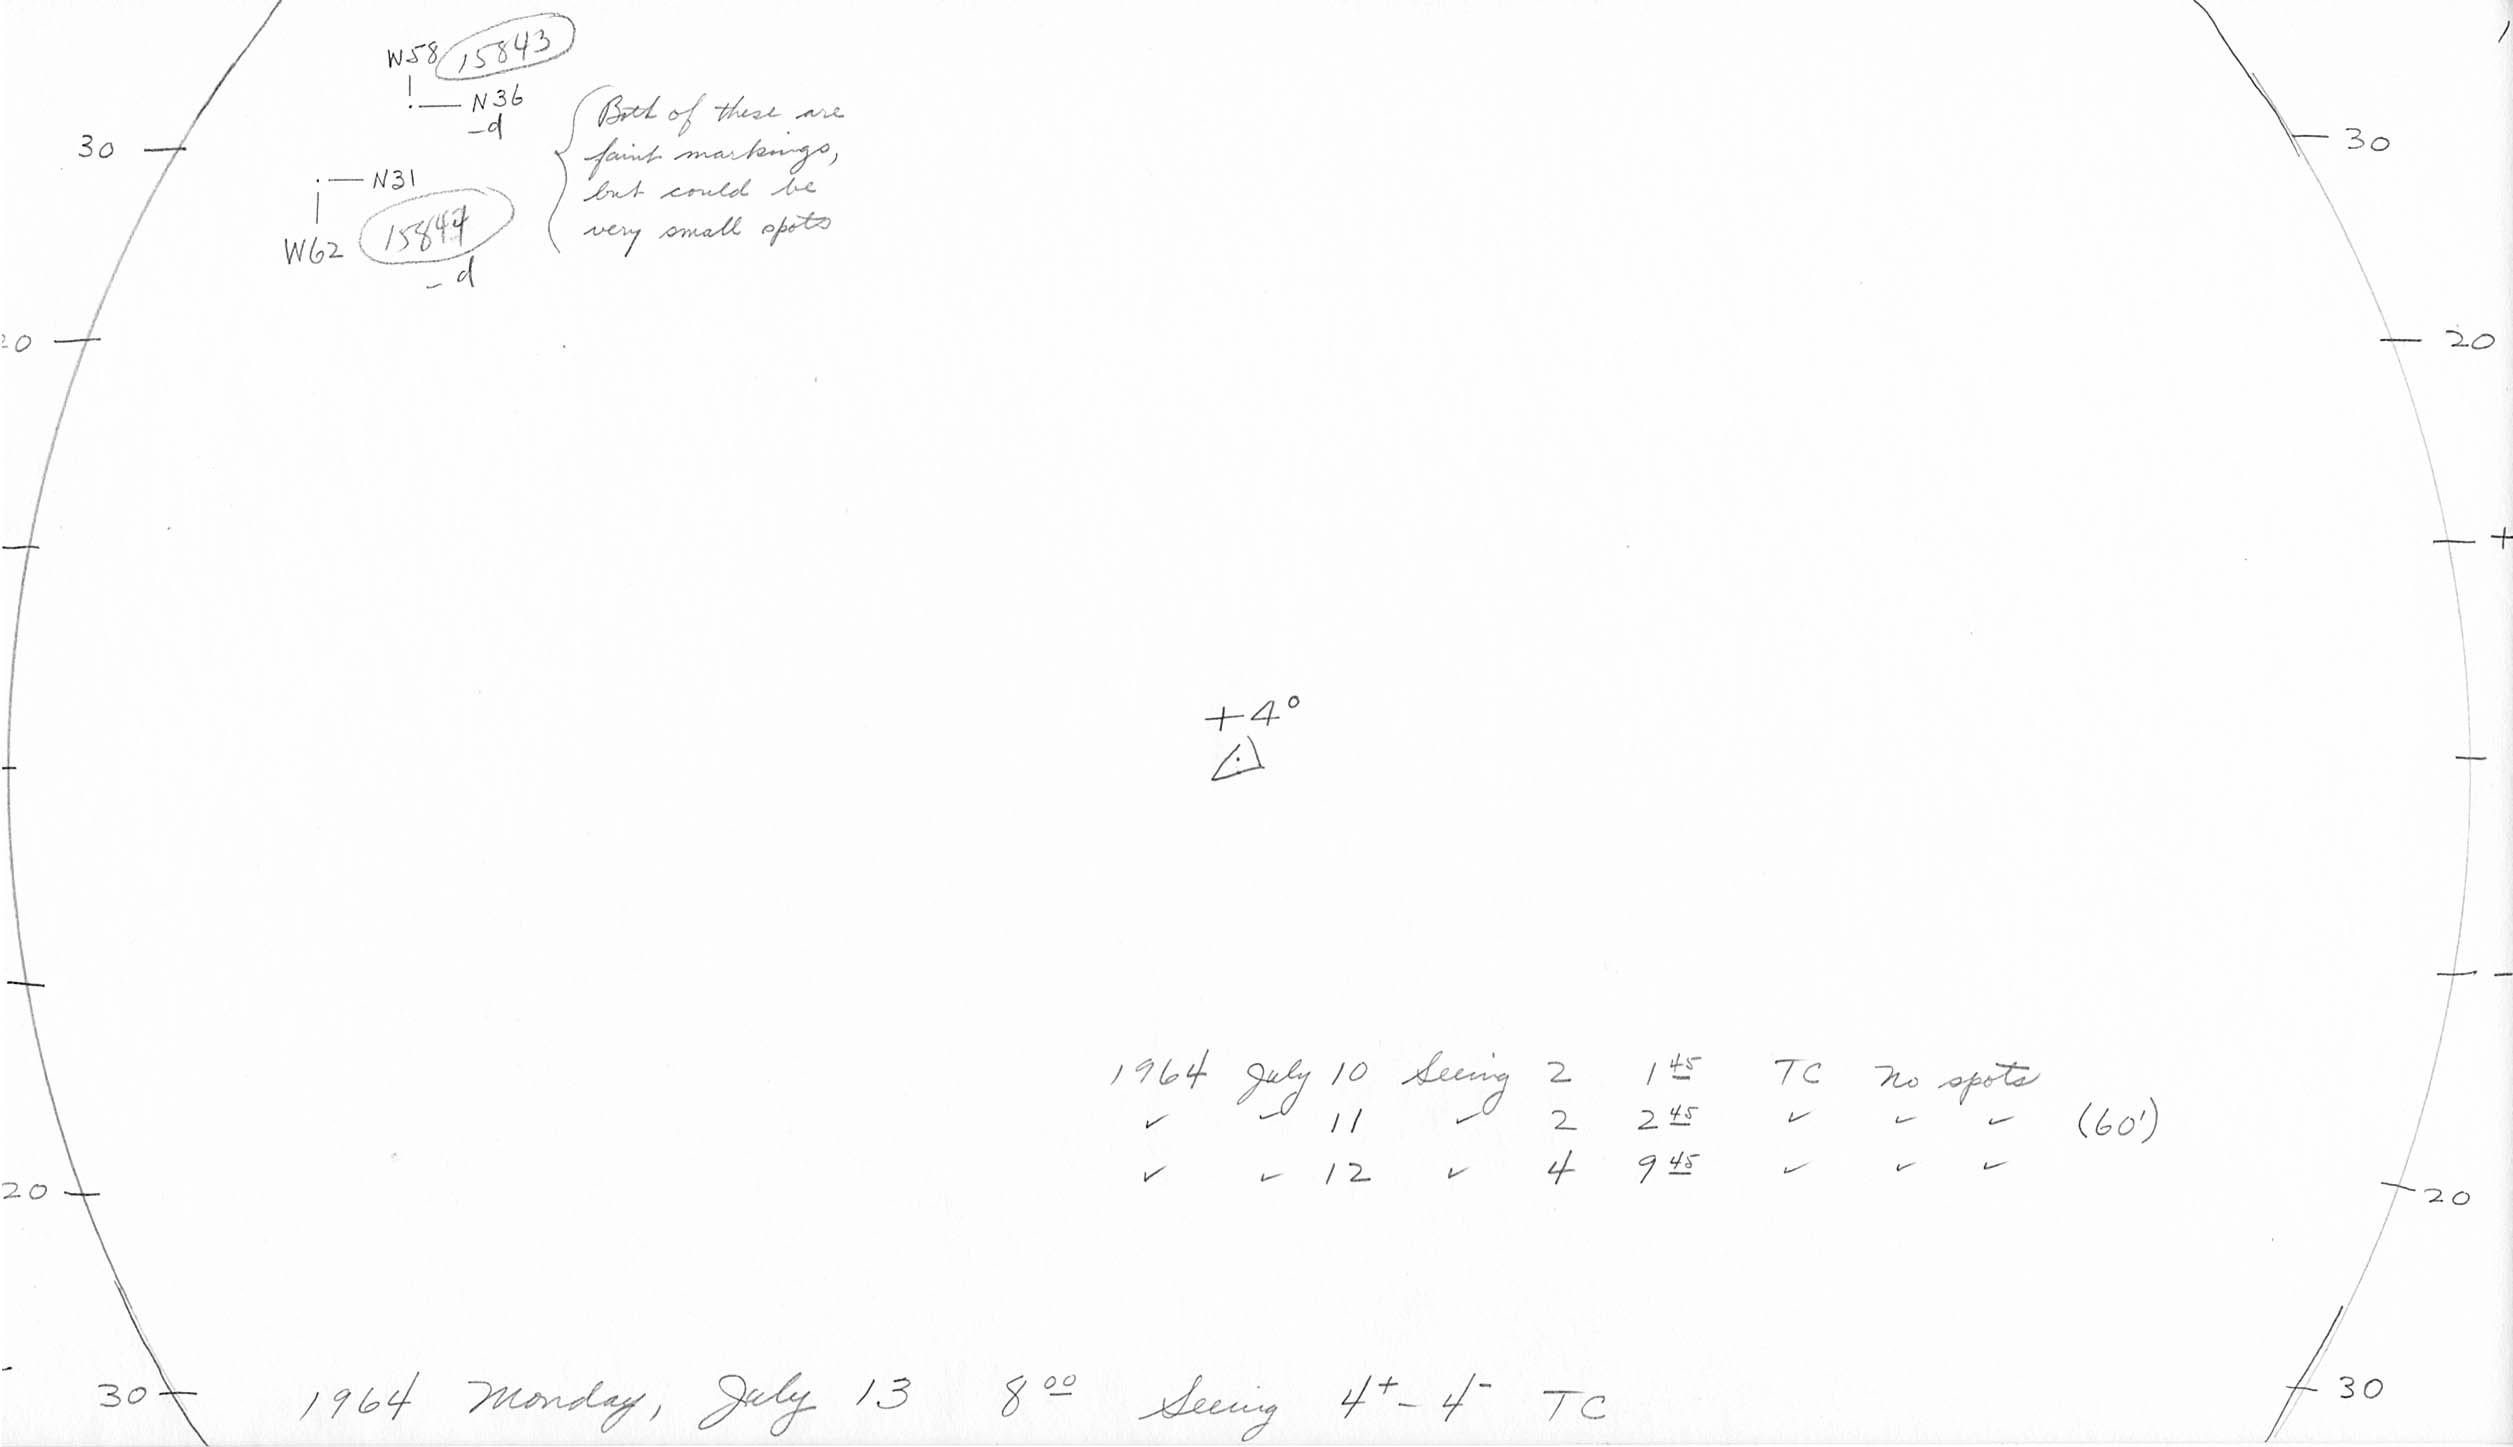 W58 15843
N36
-d
Both of these are
faint markings,
but could be
very small spots
30
30
N31
15844
W62
-d
20
20
+
+4°
-
1964 July 10 Seeing 2 1 45 TC No spots
✓ ✓ 11 ✓ 2 2 45 ✓ ✓ ✓ (60')
✓ ✓ 12 ✓ 4 9 45 ✓ ✓ ✓
20
20
30
30
1964 Monday, July 13 8 00 Seeing 4+ - 4- TC